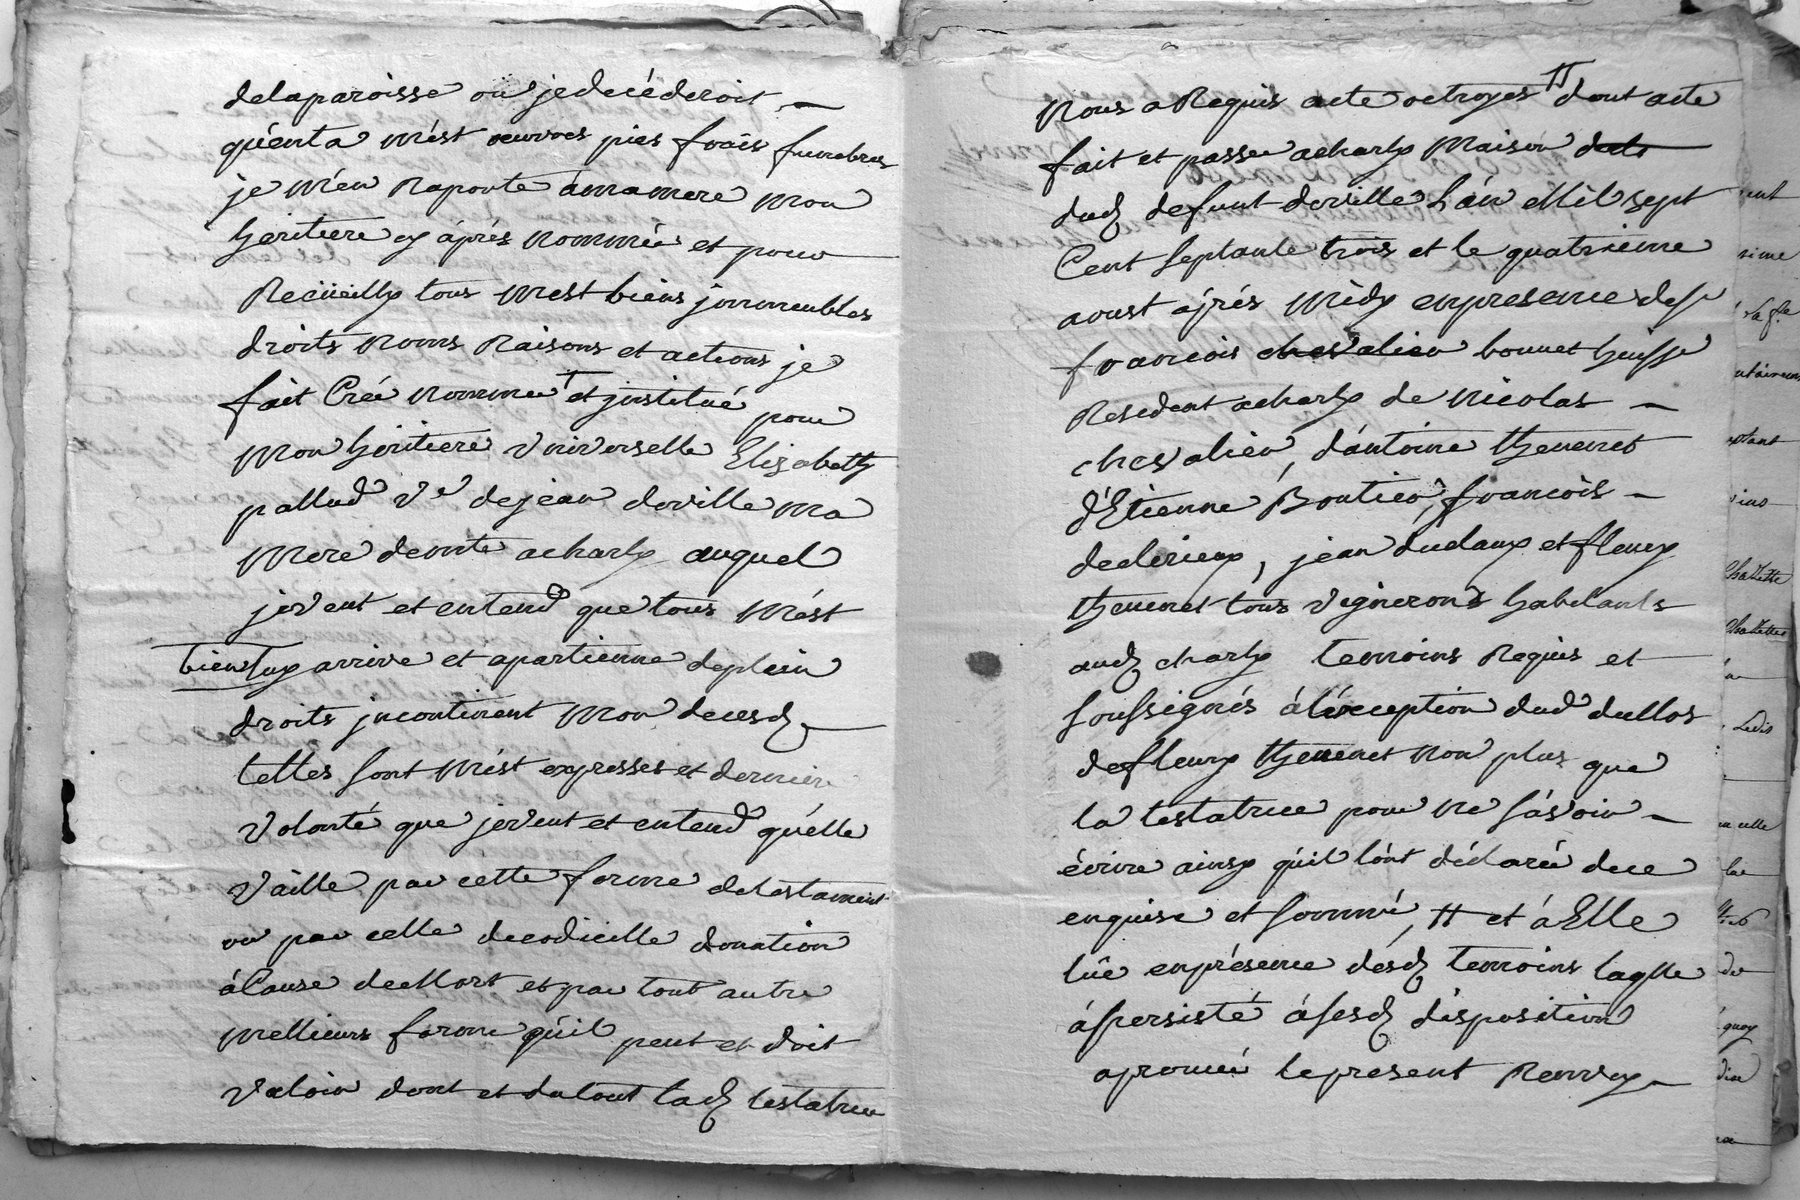 delaparoisse ou jedecéderoit
qúenta mést oeuvres pies frais funebres
je mén Raporte ámamere mon
héritiere cy áprés nommée et pour
Recüeilly tous mest biens jmmeubles
droits noms Raisons et actions je
fait Créé nommé et jnstitué pour
mon héritiere vniverselle Elizabeth
pallud Ve dejean doville ma
mere demte acharly auquel
jeveut et entend que tous mést
bien luy arrive et apartienne deplein
droits jncontinent mon decesd
telles sont mést expresses et derniere
volonté que jeveut et entend qúelle
vaille par cette forme detestament
ou par celle decodicille donation
áCause demort et par tout autre
mellieurs forme qúil peut et doit
valoir dont et dutout lad testatrice
nous a Requis acte octroyes dont acte
fait et passé acharly maison
dud defunt doville Lán mil sept
Cent septante trois et le quatrieme
aoust áprés midy enpresence desr
francois chevalier bonnet
Resident acharly de nicolas
chevalier, dántoine thevenet
dÉtienne Boutier, francois
declerieux, jean duclaux et fleury
thevenet tous vignerons habitants
aud charly temoins Requis et
soussignés áléxception dud
defleury thevenet non plus que
la testatrice pour ne sávoir
écrire ainsy qúil lónt déclaré dece
enquise et sommé, H et á Elle
lûe enprésence désd temoins laqlle
ápersisté ásesd disposition
aprouvé lepresent Renvoy